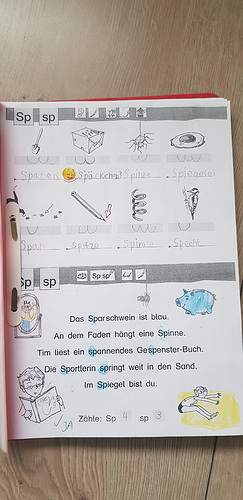 Sp sp
Spaten Spinne Spiegelei
Spitze Spirale Specht
Sp sp Sp sp
Das Sparschwein ist blau.
An dem Faden hängt eine Spinne.
Tim liest ein spannendes Gespenster-Buch.
Die Sportlerin springt weit in den Sand.
Im Spiegel bist du.
Zähle: Sp 4 sp 3
JA